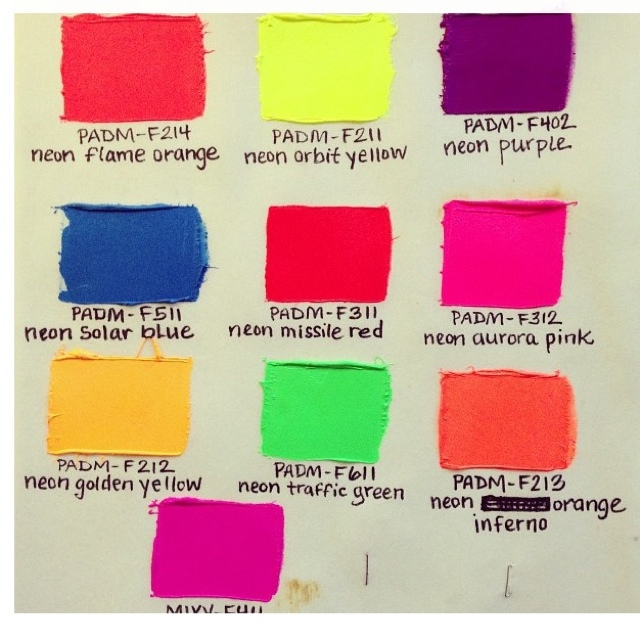 PADM-F214
neon flame orange
PADM-F211
neon orbit yellow
PADM-F402
neon purple
PADM-F511
neon solar blue
PADM-F311
neon missile red
PADM-F312
neon aurora pink
PADM-F212
neon golden yellow
PADM-F611
neon traffic green
PADM-F213
neon orange
inferno